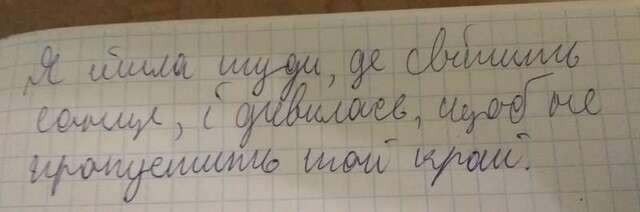 Я йшла туди, де світить
сонце, і дивилась, щоб не
пропустить той край.